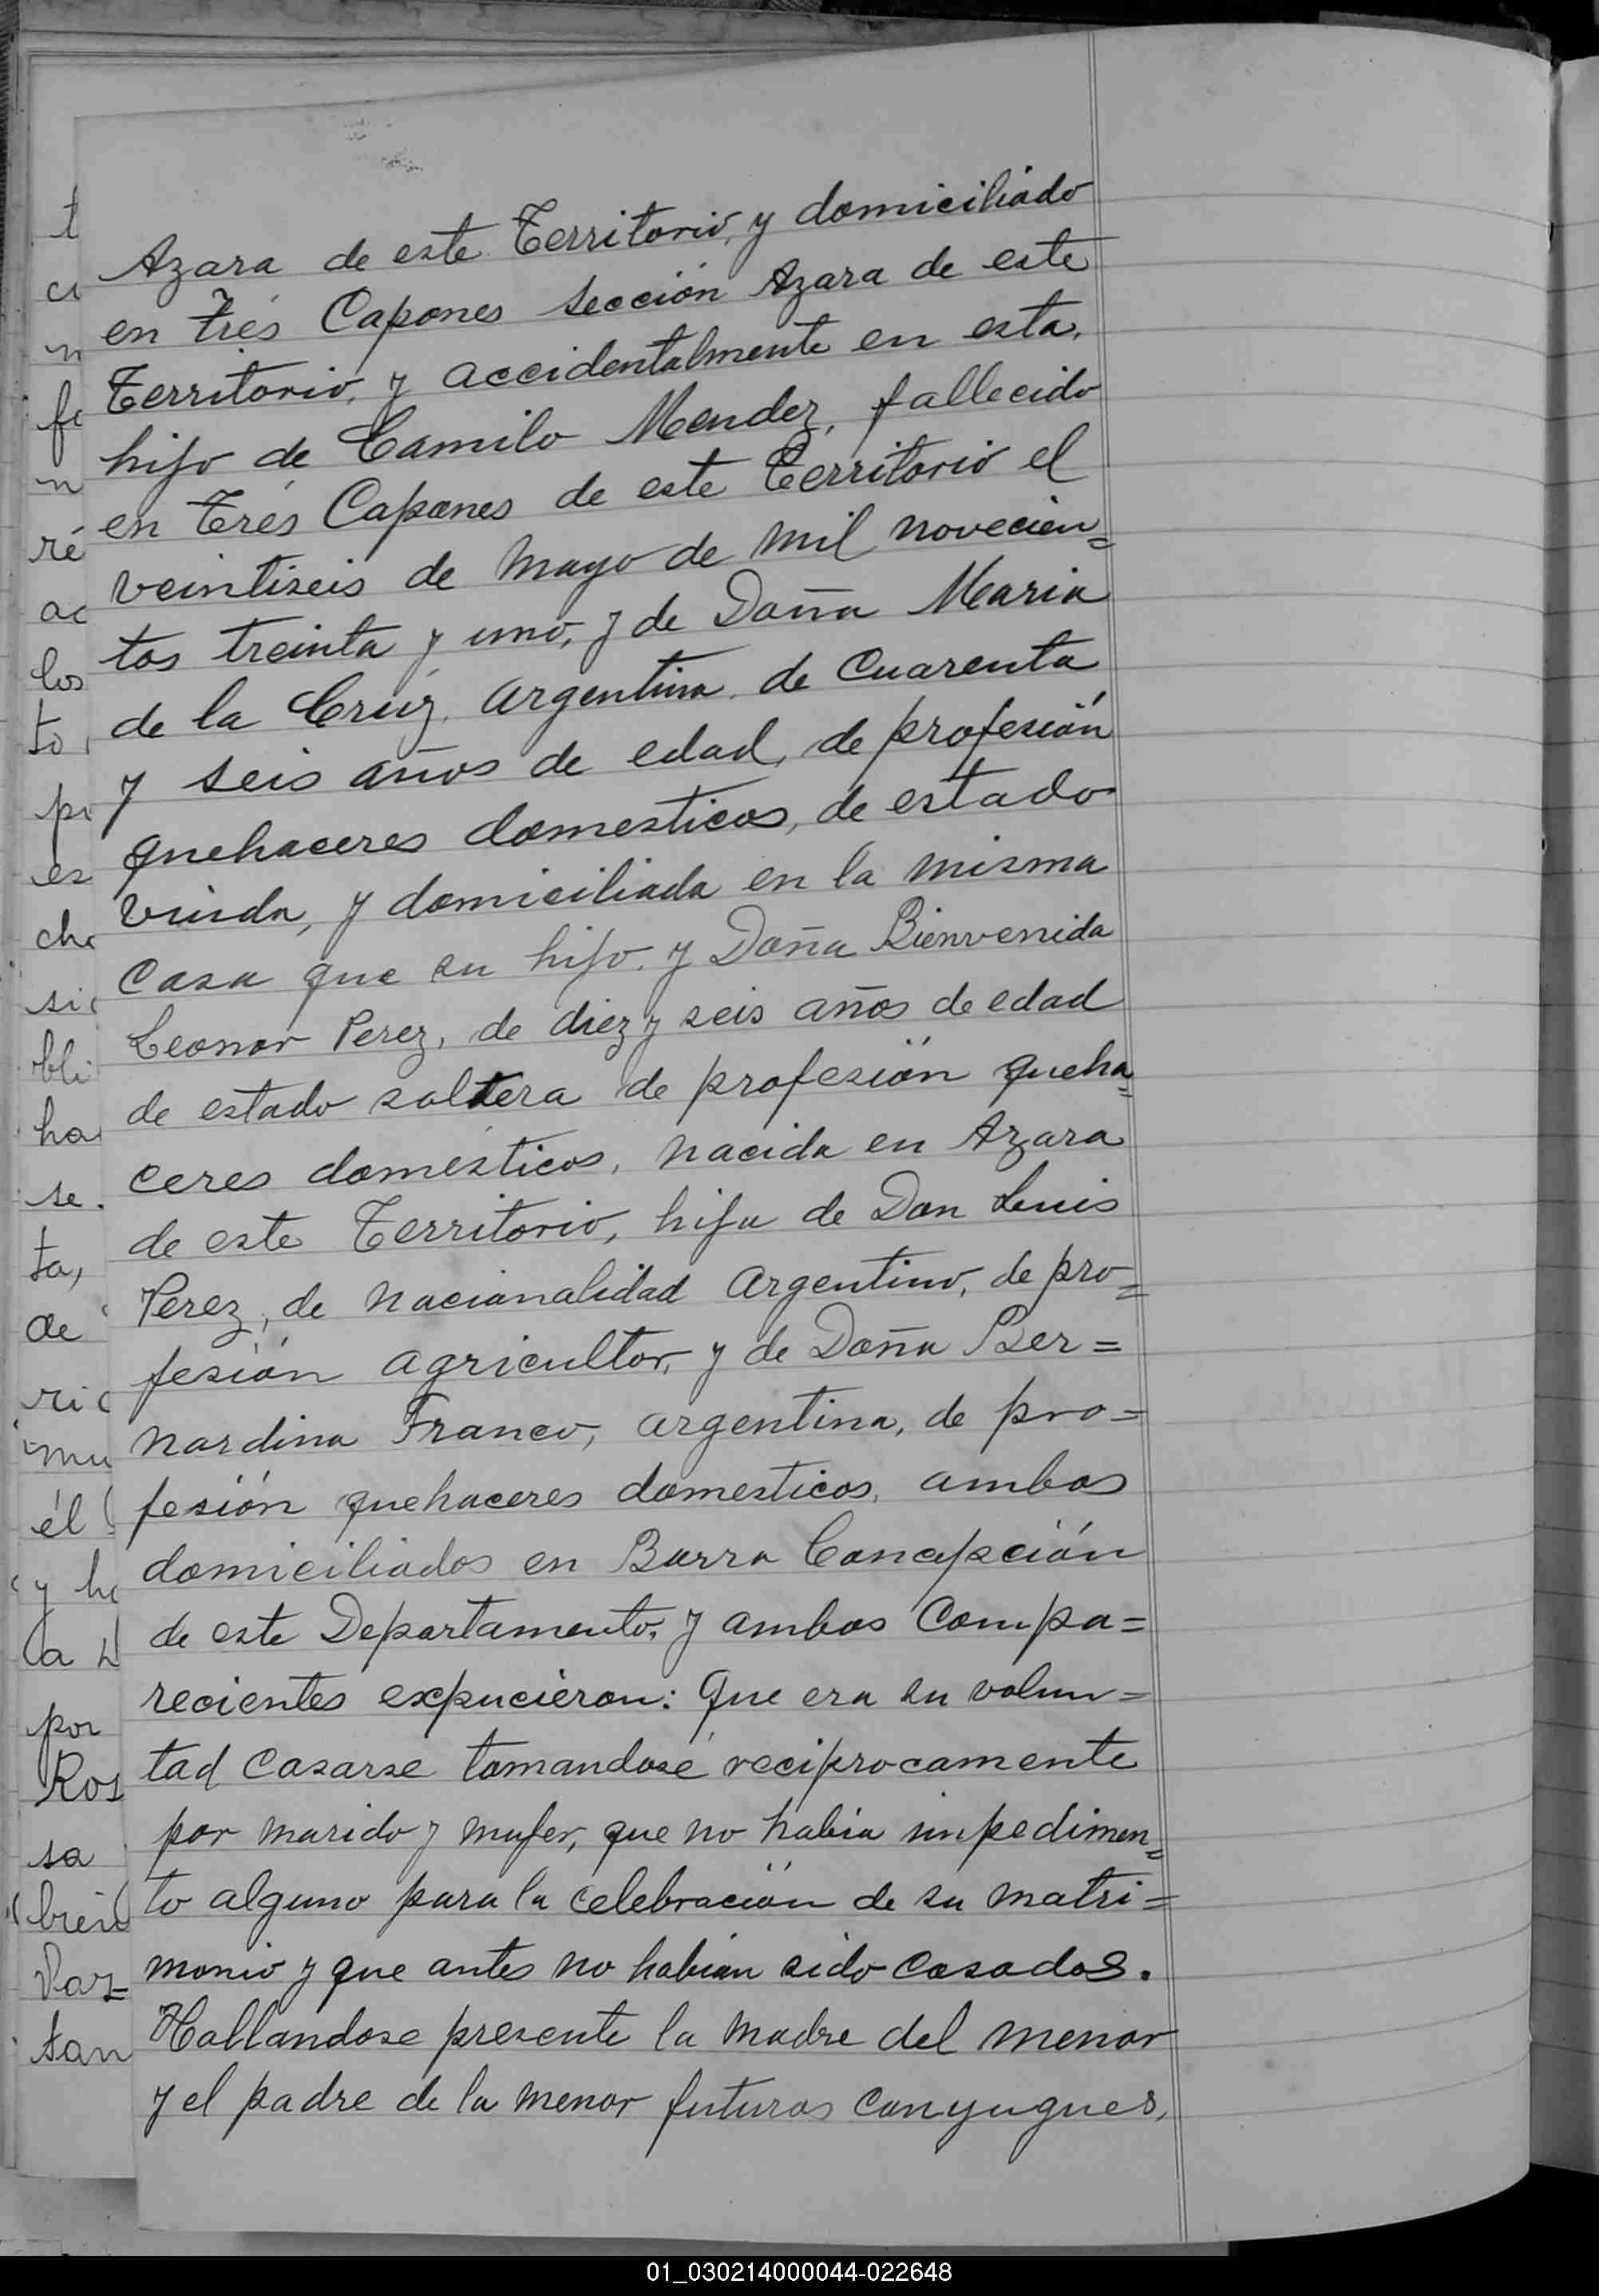 Azara de este Territorio, y domiciliado
en trés Capones sección Azara de este
Territorio, y accidentalmente en esta,
hijo de Camilo Mendez, fallecido
en Trés Capones de este Territorio el
veintiseis de Mayo de mil novecien=
tos treinta y uno, y de Doña Maria
de la Crúz, argentina, de cuarenta
y seis años de edad, de profesión
quehaceres domesticos, de estado
viuda, y domiciliada en la misma
casa que su hijo, y Doña Bienvenida
Leonor Perez, de diez y seis años de edad
de estado soltera de profesión queha=
ceres domésticos, nacida en Azara
de este Territorio, hija de Don Luis
Perez, de nacionalidad Argentino, de pro=
fesión agricultor, y de Doña Ber=
nardina Franco, argentina, de pro=
fesión quehaceres domesticos, ambos
domiciliados en Barra Concepción
de este Departamento, y ambos compa=
recientes expucieron: Que era su volun=
tad casarse tomandosé reciprocamente
por marido y mujer, que no habia impedimen=
to alguno para la celebración de su matri=
monio y que antes no habian sido casados.
Hallandose presente la madre del menor
y el padre de la menor futuros conyugues,
01_030214000044-022648